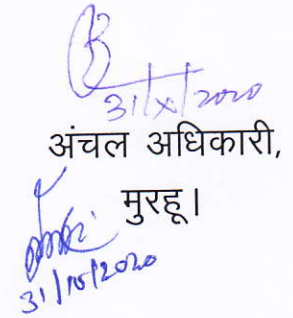 31/X/2020
अंचल अधिकारी,
मुरहू।
31/10/2020